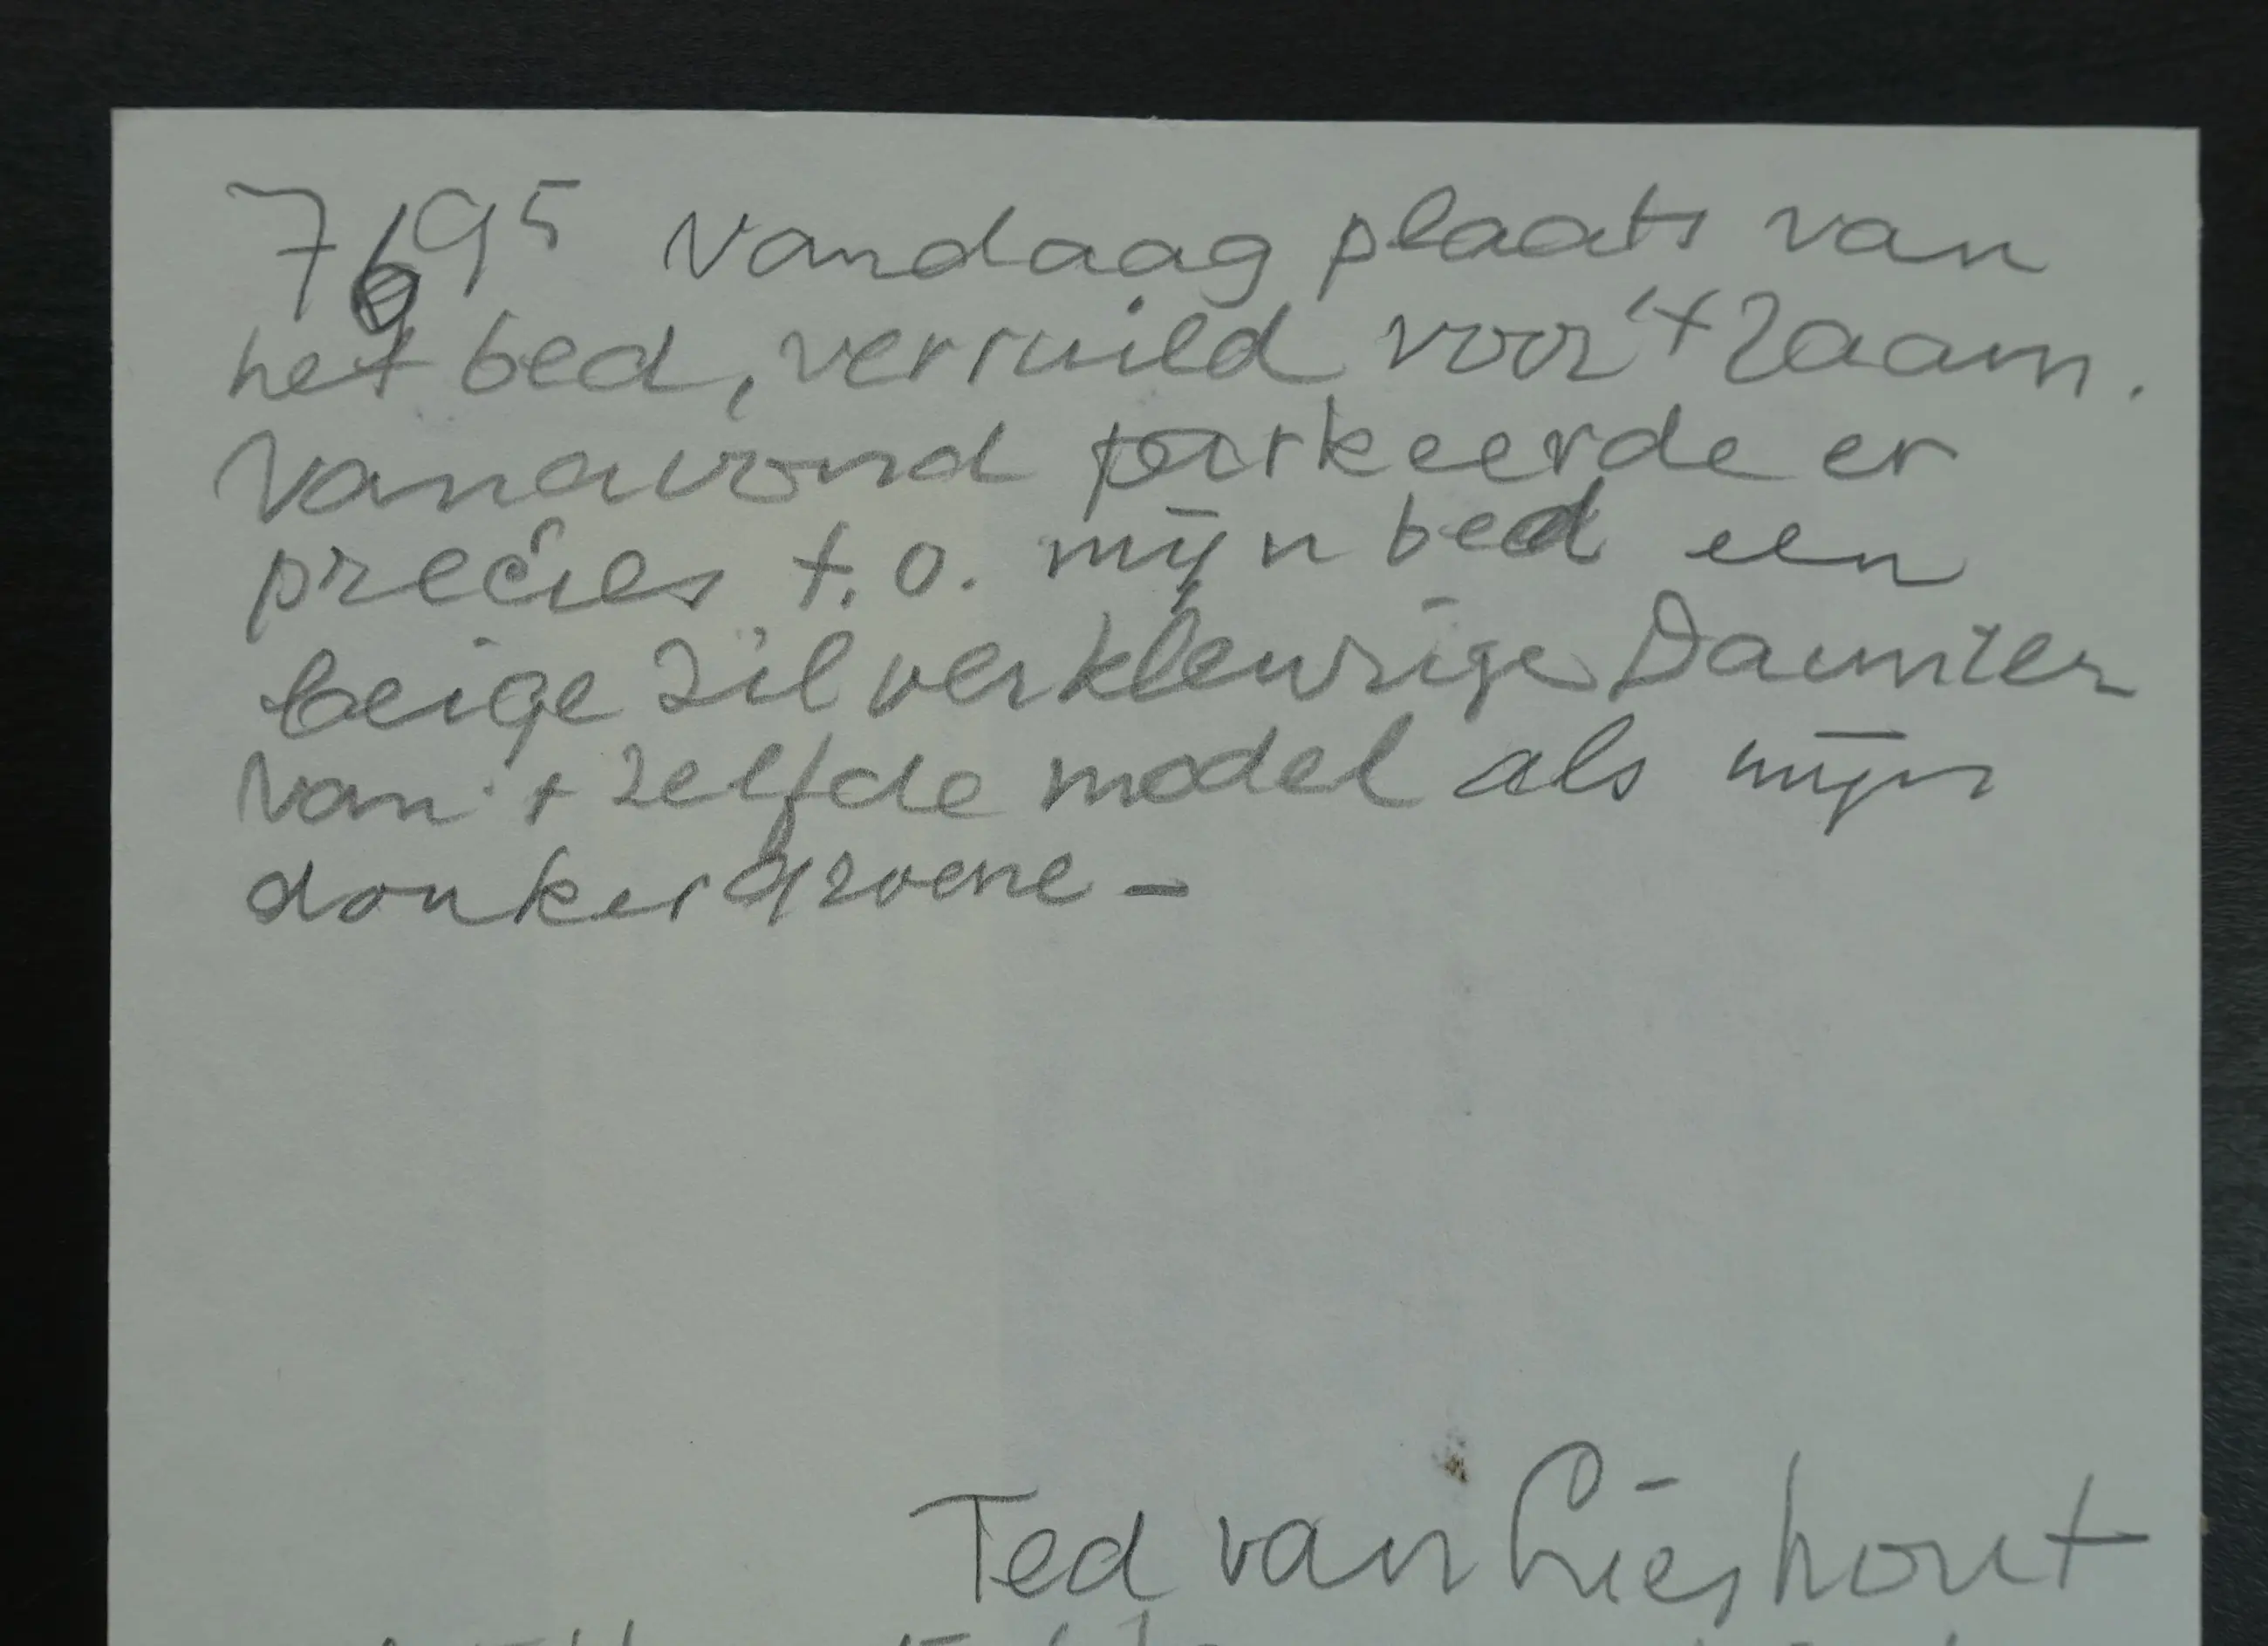 7 6 95 Vandaag plaats van
het bed, verruild voor 't raam.
Vanavond parkeerde er
precies t.o. mijn bed een
beige zilverkleurige Daimler
van 't zelfde model als mijn
donkergroene -
Ted van Lieshout